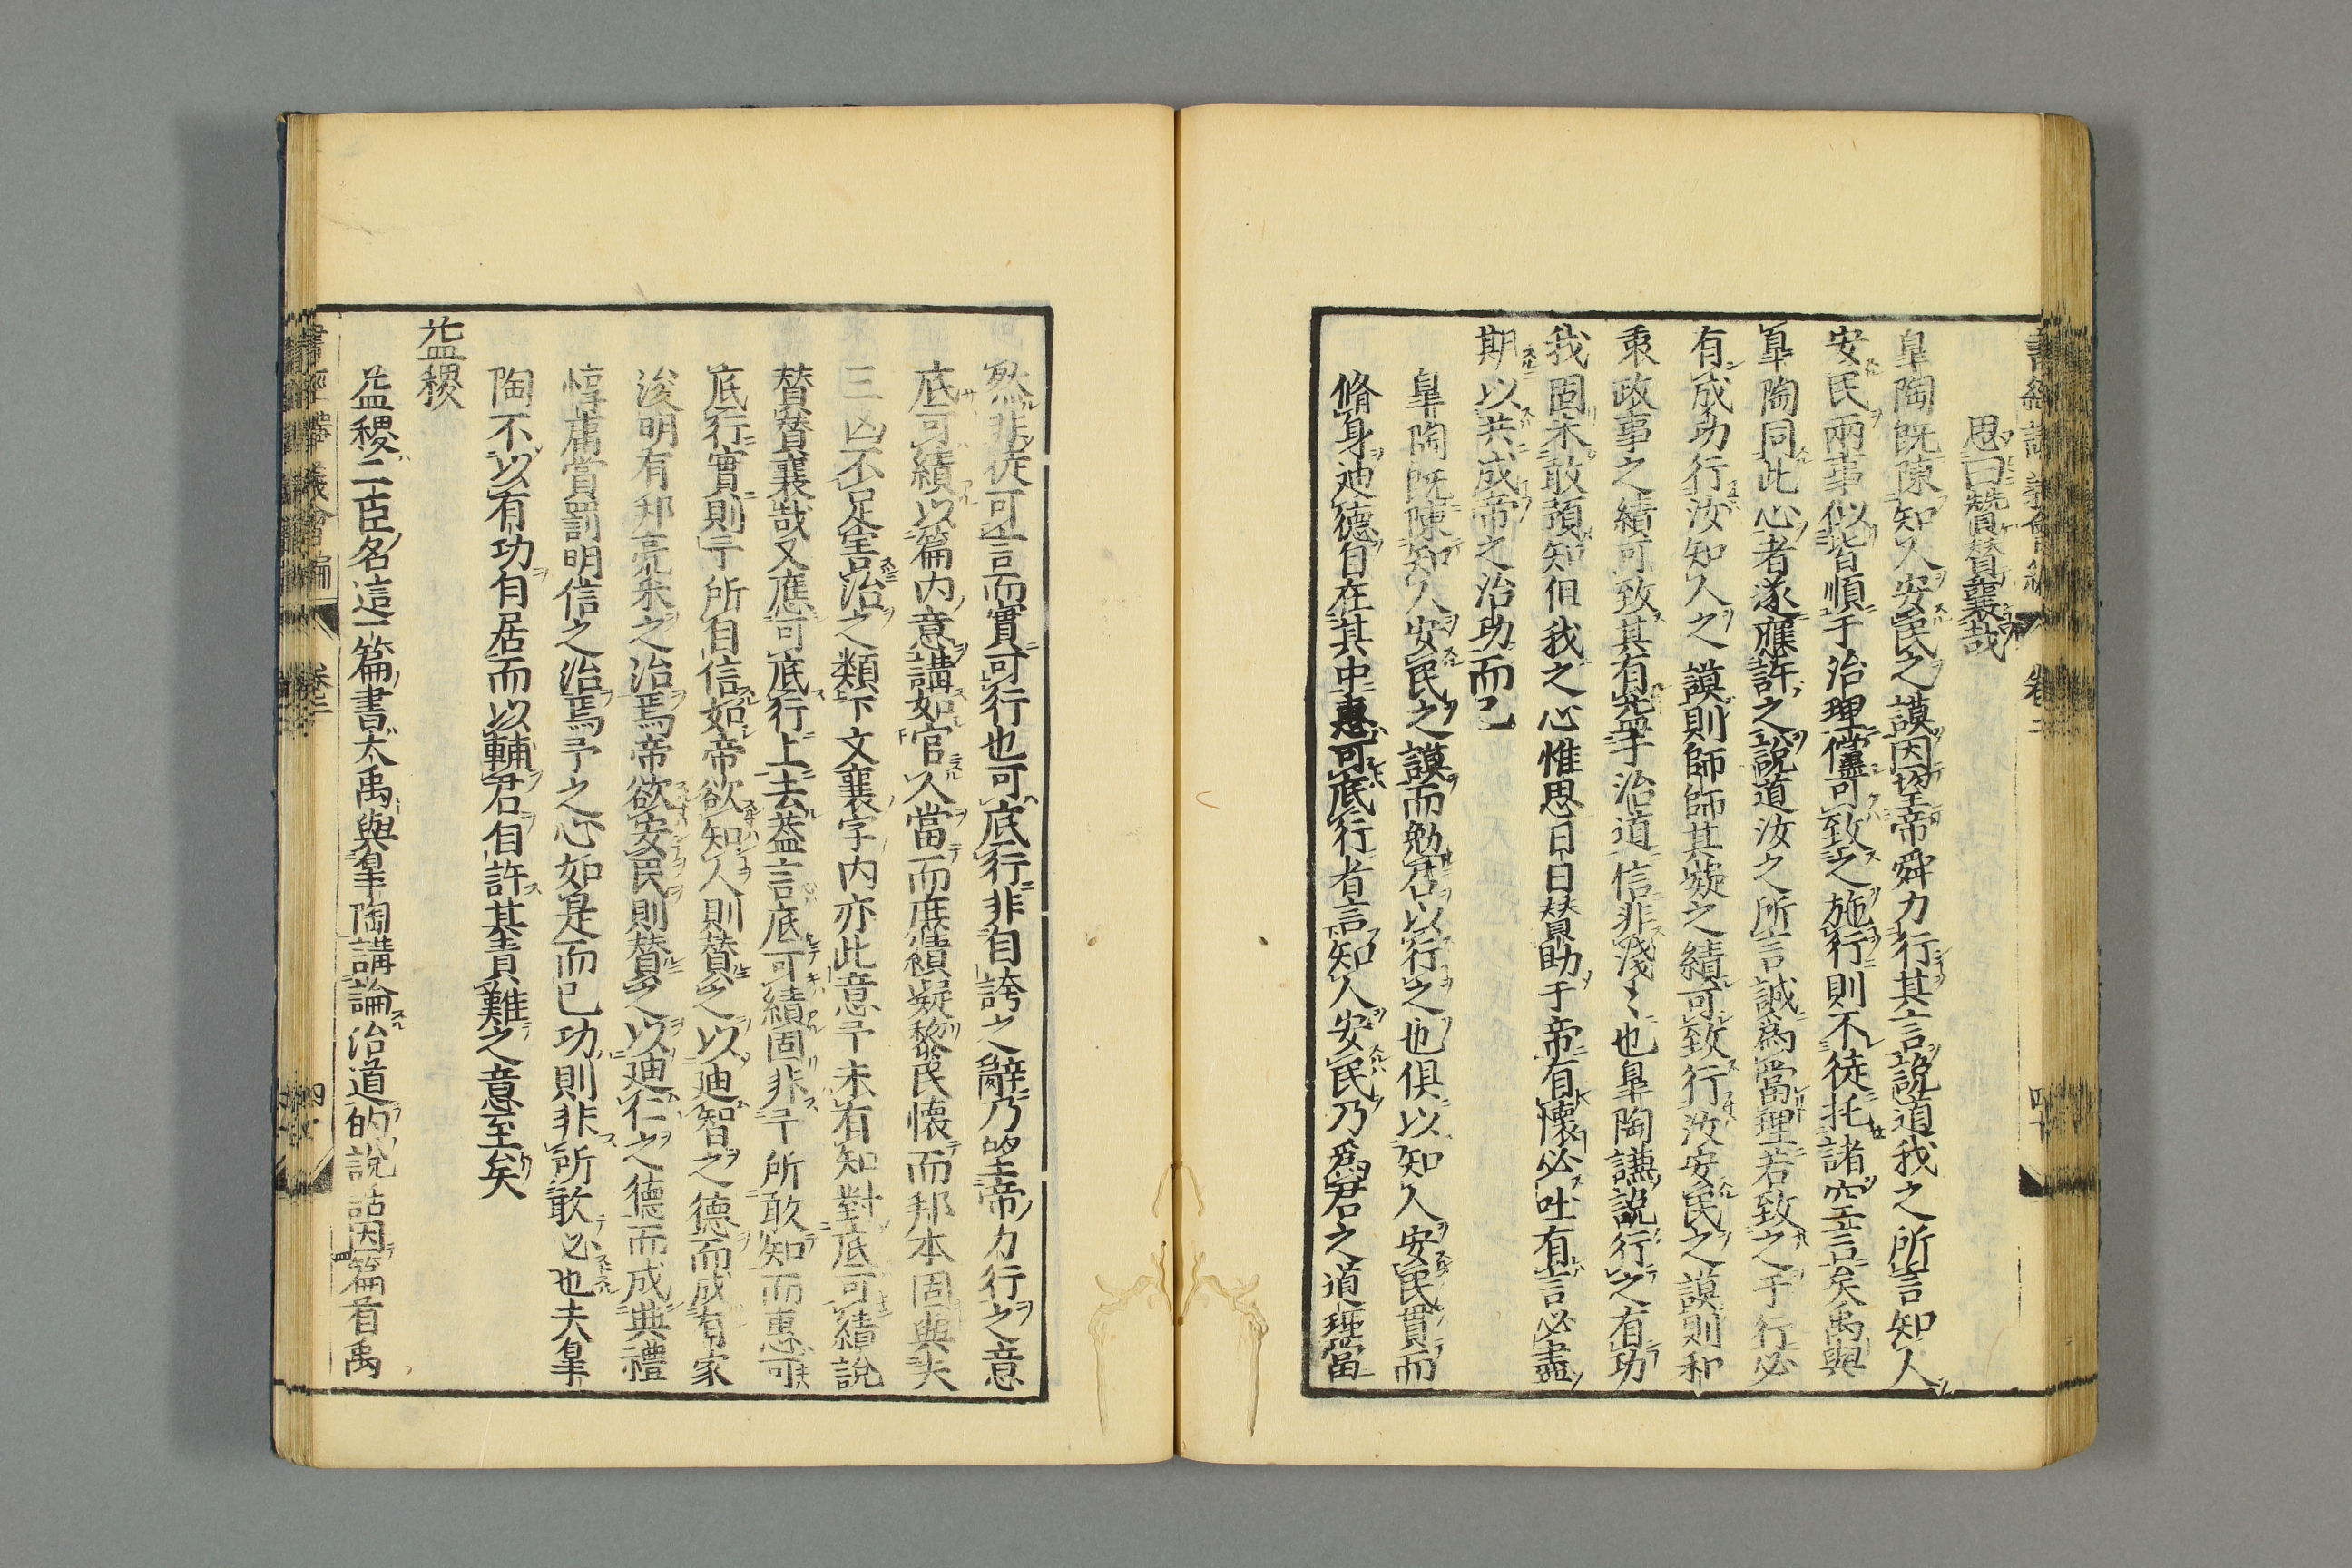 思曰贊贊襄哉
皐陶既陳知人安民之謨因望帝舜力行其言說道我之所言知人
安民兩事似皆順于治理儘可致之施行則不徒托諸空言矣禹與
皐陶同此心者遂應許之說道汝之所言誠為當理若致之于行必
有成功行汝知人之謨則師師其凝之績可致行汝安民之謨則和
東政事之績可致其有益于治道信非淺淺也皐陶謙說行之有功
我固未敢預知但我之心惟思日日贊助于帝有懷必吐有言必盡
期以共成帝之治功而已
皐陶既陳知人安民之謨而勉君以行之也俱以知人安民貫而
脩身迪德自在其中惠可底行者言知人安民乃為君之道理當
然非徒可言而實可行也可底行非自誇之辭乃望帝力行之意
底可績以篇内意講如官人當而庶績凝黎民懷而邦本固與夫
三凶不足害治之類下文襄字内亦此意予未有知對底可績說
贊贊襄哉又應可底行上去蓋言底可績固非予所敢知而惠可
底行實則予所自信如帝欲知人則贊之以迪智之德而成有家
浚明有邦亮采之治焉帝欲安民則贊之以迪仁之德而成典禮
惇庸賞罰明信之治焉予之心如是而已功則非所敢必也夫皐
陶不以有功自居而以輔君自許其責難之意至矣
益稷
益稷二臣名這一篇書太禹與皐陶講論治道的說話因篇首禹
書經講義會編 卷二